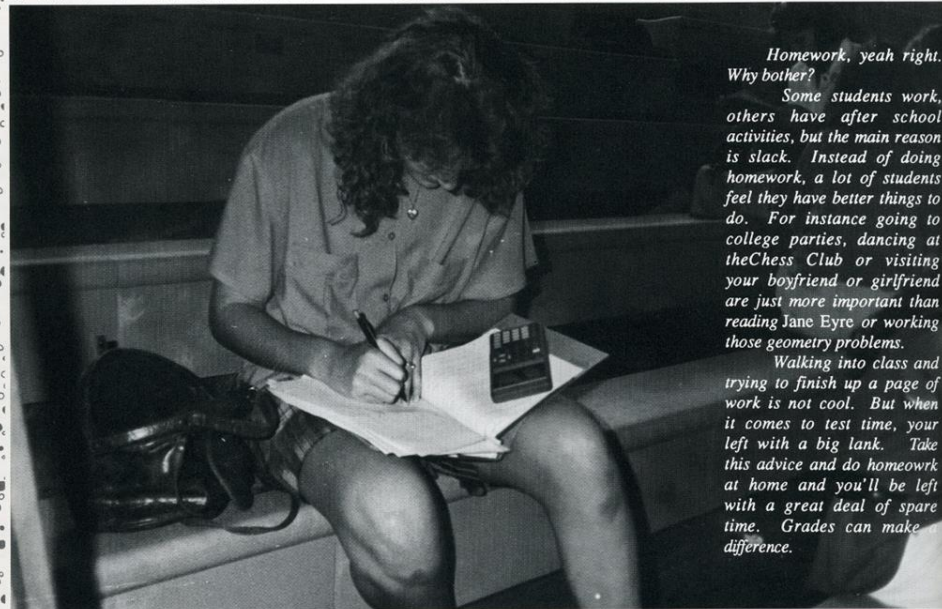 Homework, yeah right.
Why bother?
Some students work,
others have after school
activities, but the main reason
is slack. Instead of doing
homework, a lot of students
feel they have better things to
do. For instance going to
college parties, dancing at
theChess Club or visiting
your boyfriend or girlfriend
are just more important than
reading Jane Eyre or working
those geometry problems.
Walking into class and
trying to finish up a page of
work is not cool. But when
it comes to test time, your
left with a big lank. Take
this advice and do homeowrk
at home and you'll be left
with a great deal of spare
time. Grades can make a
difference.